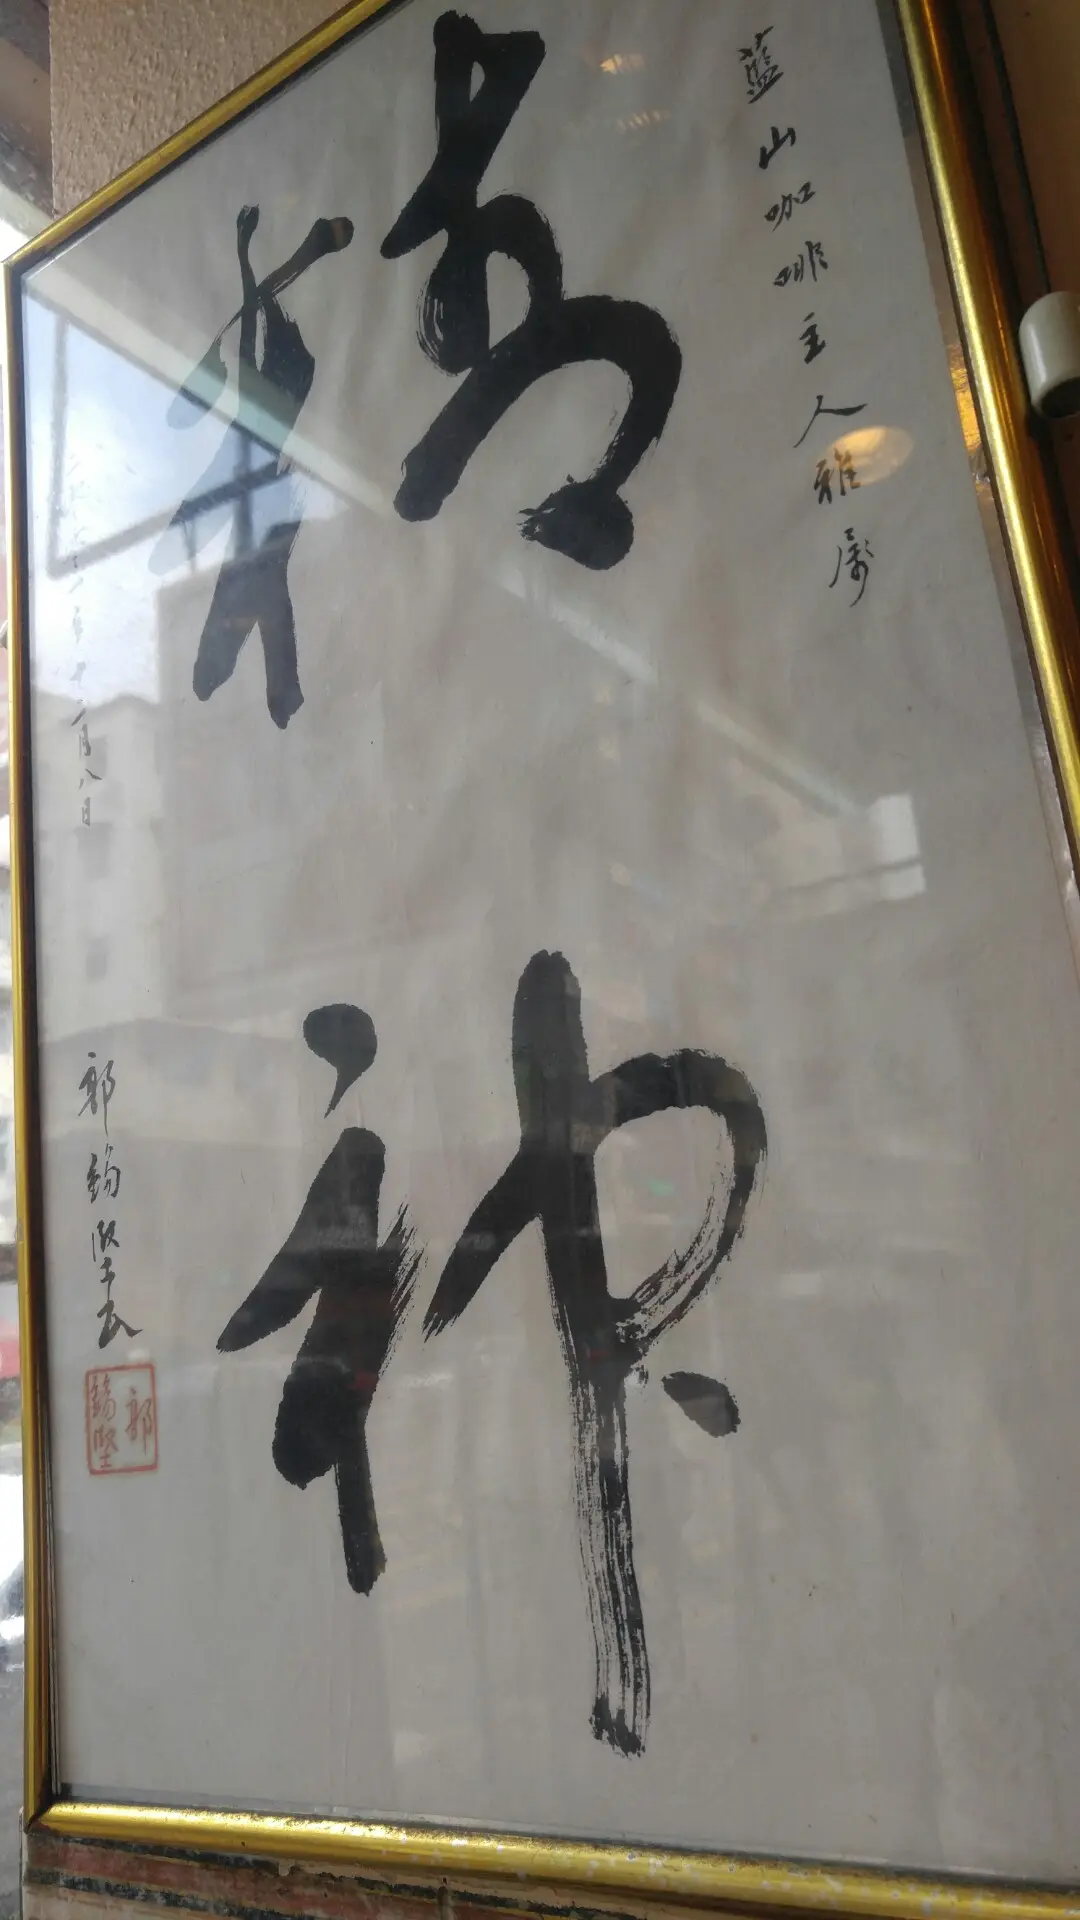 藍山咖啡主人雅屬
精神
年十二月八日
郭錫堅民
郭
錫堅